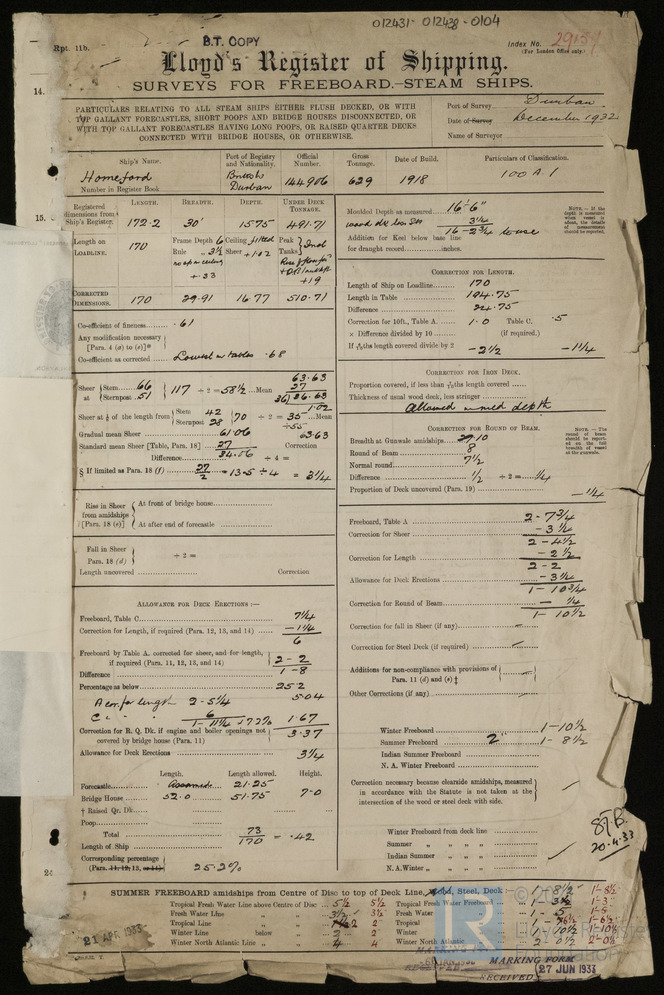 012431-012438-0104
Rpt. 11b.
B.T. COPY
Index No. 29151
(For London Office only.)
Lloyd's Register of Shipping.
SURVEYS FOR FREEBOARD.—STEAM SHIPS.
14.
PARTICULARS RELATING TO ALL STEAM SHIPS EITHER FLUSH DECKED, OR WITH
TOP GALLANT FORECASTLES, SHORT POOPS AND BRIDGE HOUSES DISCONNECTED, OR
WITH TOP GALLANT FORECASTLES HAVING LONG POOPS, OR RAISED QUARTER DECKS
CONNECTED WITH BRIDGE HOUSES, OR OTHERWISE.
Port of Survey Durban.
Date of Survey December 1932
Name of Surveyor
Ship's Name. Port of Registry and Nationality. Official Number. Gross Tonnage. Date of Build. Particulars of Classification.
Homeford British Durban 144906 629 1918 100 A.1
Number in Register Book
15.
Registered dimensions from Ship's Register. LENGTH. 172.2 BREADTH. 30' DEPTH. 15.75 UNDER DECK TONNAGE. 491.71
Length on LOADLINE. 170 Frame Depth 6 Rule 3½ Ceiling fitted Sheer +1.02 Peak Tanks
+.33
+19
CORRECTED DIMENSIONS. 170 29.91 16.77 510.71
Co-efficient of fineness .61
Any modification necessary
[Para. 4 (a) to (e)]*
Co-efficient as corrected Lowest in tables .68
Sheer at Stem 66 Sternpost 51 117 ÷ 2 = 58½ Mean
63.63
27
36.63
1.02
Sheer at ⅛ of the length from Stem 42 Sternpost 28 70 ÷ 2 = 35 Mean
÷55
Gradual mean Sheer 61.06 63.63
Standard mean Sheer [Table, Para. 18] 27 Correction
Difference 34.06 ÷ 4 =
§ If limited as Para. 18 (f) 27/2 = 13.5 ÷ 4 = 3¼
Rise in Sheer from amidships [Para. 18 (e)]
At front of bridge house
At after end of forecastle
Fall in Sheer Para. 18 (d) ÷ 2 =
Length uncovered Correction
ALLOWANCE FOR DECK ERECTIONS :—
Freeboard, Table C 7¼
Correction for Length, if required (Para. 12, 13, and 14) —1¼
6
Freeboard by Table A, corrected for sheer, and for length, if required (Para. 11, 12, 13, and 14) 2-2
Difference 1-8
Percentage as below 25.2
5.04
A cor. for length 2-5¼
C " " 6
1-11¼ x 7.2% 1.67
Correction for R. Q. Dk. if engine and boiler openings not covered by bridge house (Para. 11) 3.37
Allowance for Deck Erections 3¼
Length. Length allowed. Height.
Forecastle 21.25
Bridge House 52.0 51.75 7-0
† Raised Qr. Dk.
Poop
Total 73
Length of Ship 170 = .42
Corresponding percentage
(Para. 11, 12, 13, or 14) 25.2%
Moulded Depth as measured 16'-6"
wood dk. less 3¼
16-2¾ to use
Addition for Keel below base line for draught record inches.
NOTE.—If the depth is measured when vessel is afloat, the details of measurement should be reported.
CORRECTION FOR LENGTH.
Length of Ship on Loadline 170
Length in Table 194.75
Difference 24.75
Correction for 10ft., Table A. 1.0 Table C, .5
× Difference divided by 10 (if required.)
If 6/10ths length covered divide by 2 —2½ —1¼
CORRECTION FOR IRON DECK.
Proportion covered, if less than 7/10ths length covered
Thickness of usual wood deck, less stringer
Allowed in mld depth
CORRECTION FOR ROUND OF BEAM.
Breadth at Gunwale amidships 29.10
Round of Beam 8
Normal round 7½
Difference ½ ÷ 2 = ¼
Proportion of Deck uncovered (Para. 19) —¼
NOTE.—The round of beam should be reported on the full breadth of vessel at the gunwale.
Freeboard, Table A 2-7¾
Correction for Sheer —3¼
2-4½
Correction for Length —2½
2-2
Allowance for Deck Erections —3¼
1-10¾
Correction for Round of Beam —¼
1-10½
Correction for fall in Sheer (if any)
Correction for Steel Deck (if required)
Additions for non-compliance with provisions of Para. 11 (d) and (e) ‡
Other Corrections (if any)
Winter Freeboard 1-10½
Summer Freeboard 2" 1-8½
Indian Summer Freeboard
N. A. Winter Freeboard
Correction necessary because clearside amidships, measured in accordance with the Statute is not taken at the intersection of the wood or steel deck with side.
Winter Freeboard from deck line
Summer " " " "
Indian Summer " " " "
N.A. Winter " " " "
20.4.33
SUMMER FREEBOARD amidships from Centre of Disc to top of Deck Line, Wood, Steel, Deck :— 1-8½ 1-8½
Tropical Fresh Water Line above Centre of Disc 5½ 5½ Tropical Fresh Water Freeboard 1-3 1-3
Fresh Water Line " " 3½ 3½ Fresh Water " 1-5 1-5
Tropical Line " " 2 Tropical " 1-6½ 1-6½
Winter Line below " 2 2" Winter " 1-10½ 1-10½
Winter North Atlantic Line " " 4 4 Winter North Atlantic " 2-0½ 2-0½
21 APR 1933
MARKING FORM
RECEIVED 27 JUN 1933
LR
Foundation